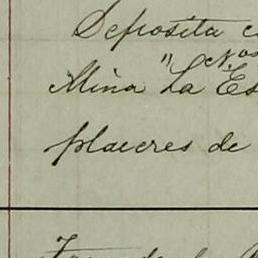 Deposita
" Nos
Mina "La Es
placeres de